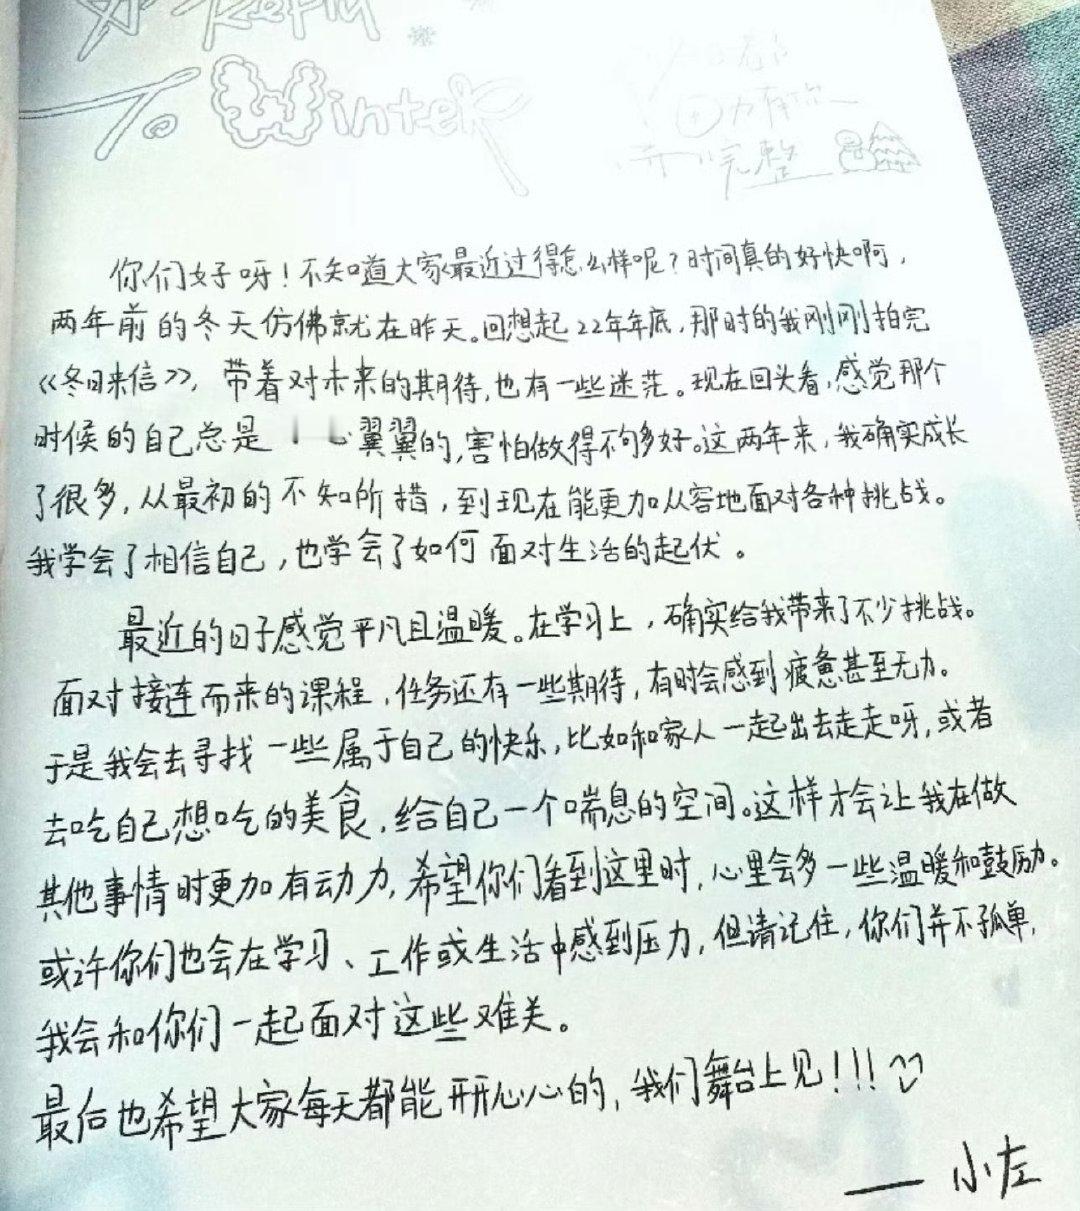 Reply
To Winter
完整
你们好呀！不知道大家最近过得怎么样呢？时间真的好快啊，
两年前的冬天仿佛就在昨天。回想起22年年底，那时的我刚刚拍完
《冬日来信》，带着对未来的期待，也有一些迷茫。现在回头看，感觉那个
时候的自己总是小心翼翼的，害怕做得不够多好。这两年来，我确实成长
了很多，从最初的不知所措，到现在能更加从容地面对各种挑战。
我学会了相信自己，也学会了如何面对生活的起伏。
最近的日子感觉平凡且温暖。在学习上，确实给我带来了不少挑战。
面对接连而来的课程，任务还有一些期待，有时会感到疲惫甚至无力。
于是我会去寻找一些属于自己的快乐，比如和家人一起出去走走呀，或者
去吃自己想吃的美食，给自己一个喘息的空间。这样才会让我在做
其他事情时更加有动力，希望你们看到这里时，心里会多一些温暖和鼓励。
或许你们也会在学习、工作或生活中感到压力，但请记住，你们并不孤单，
我会和你们一起面对这些难关。
最后也希望大家每天都能开开心心的，我们舞台上见！！！
——小左